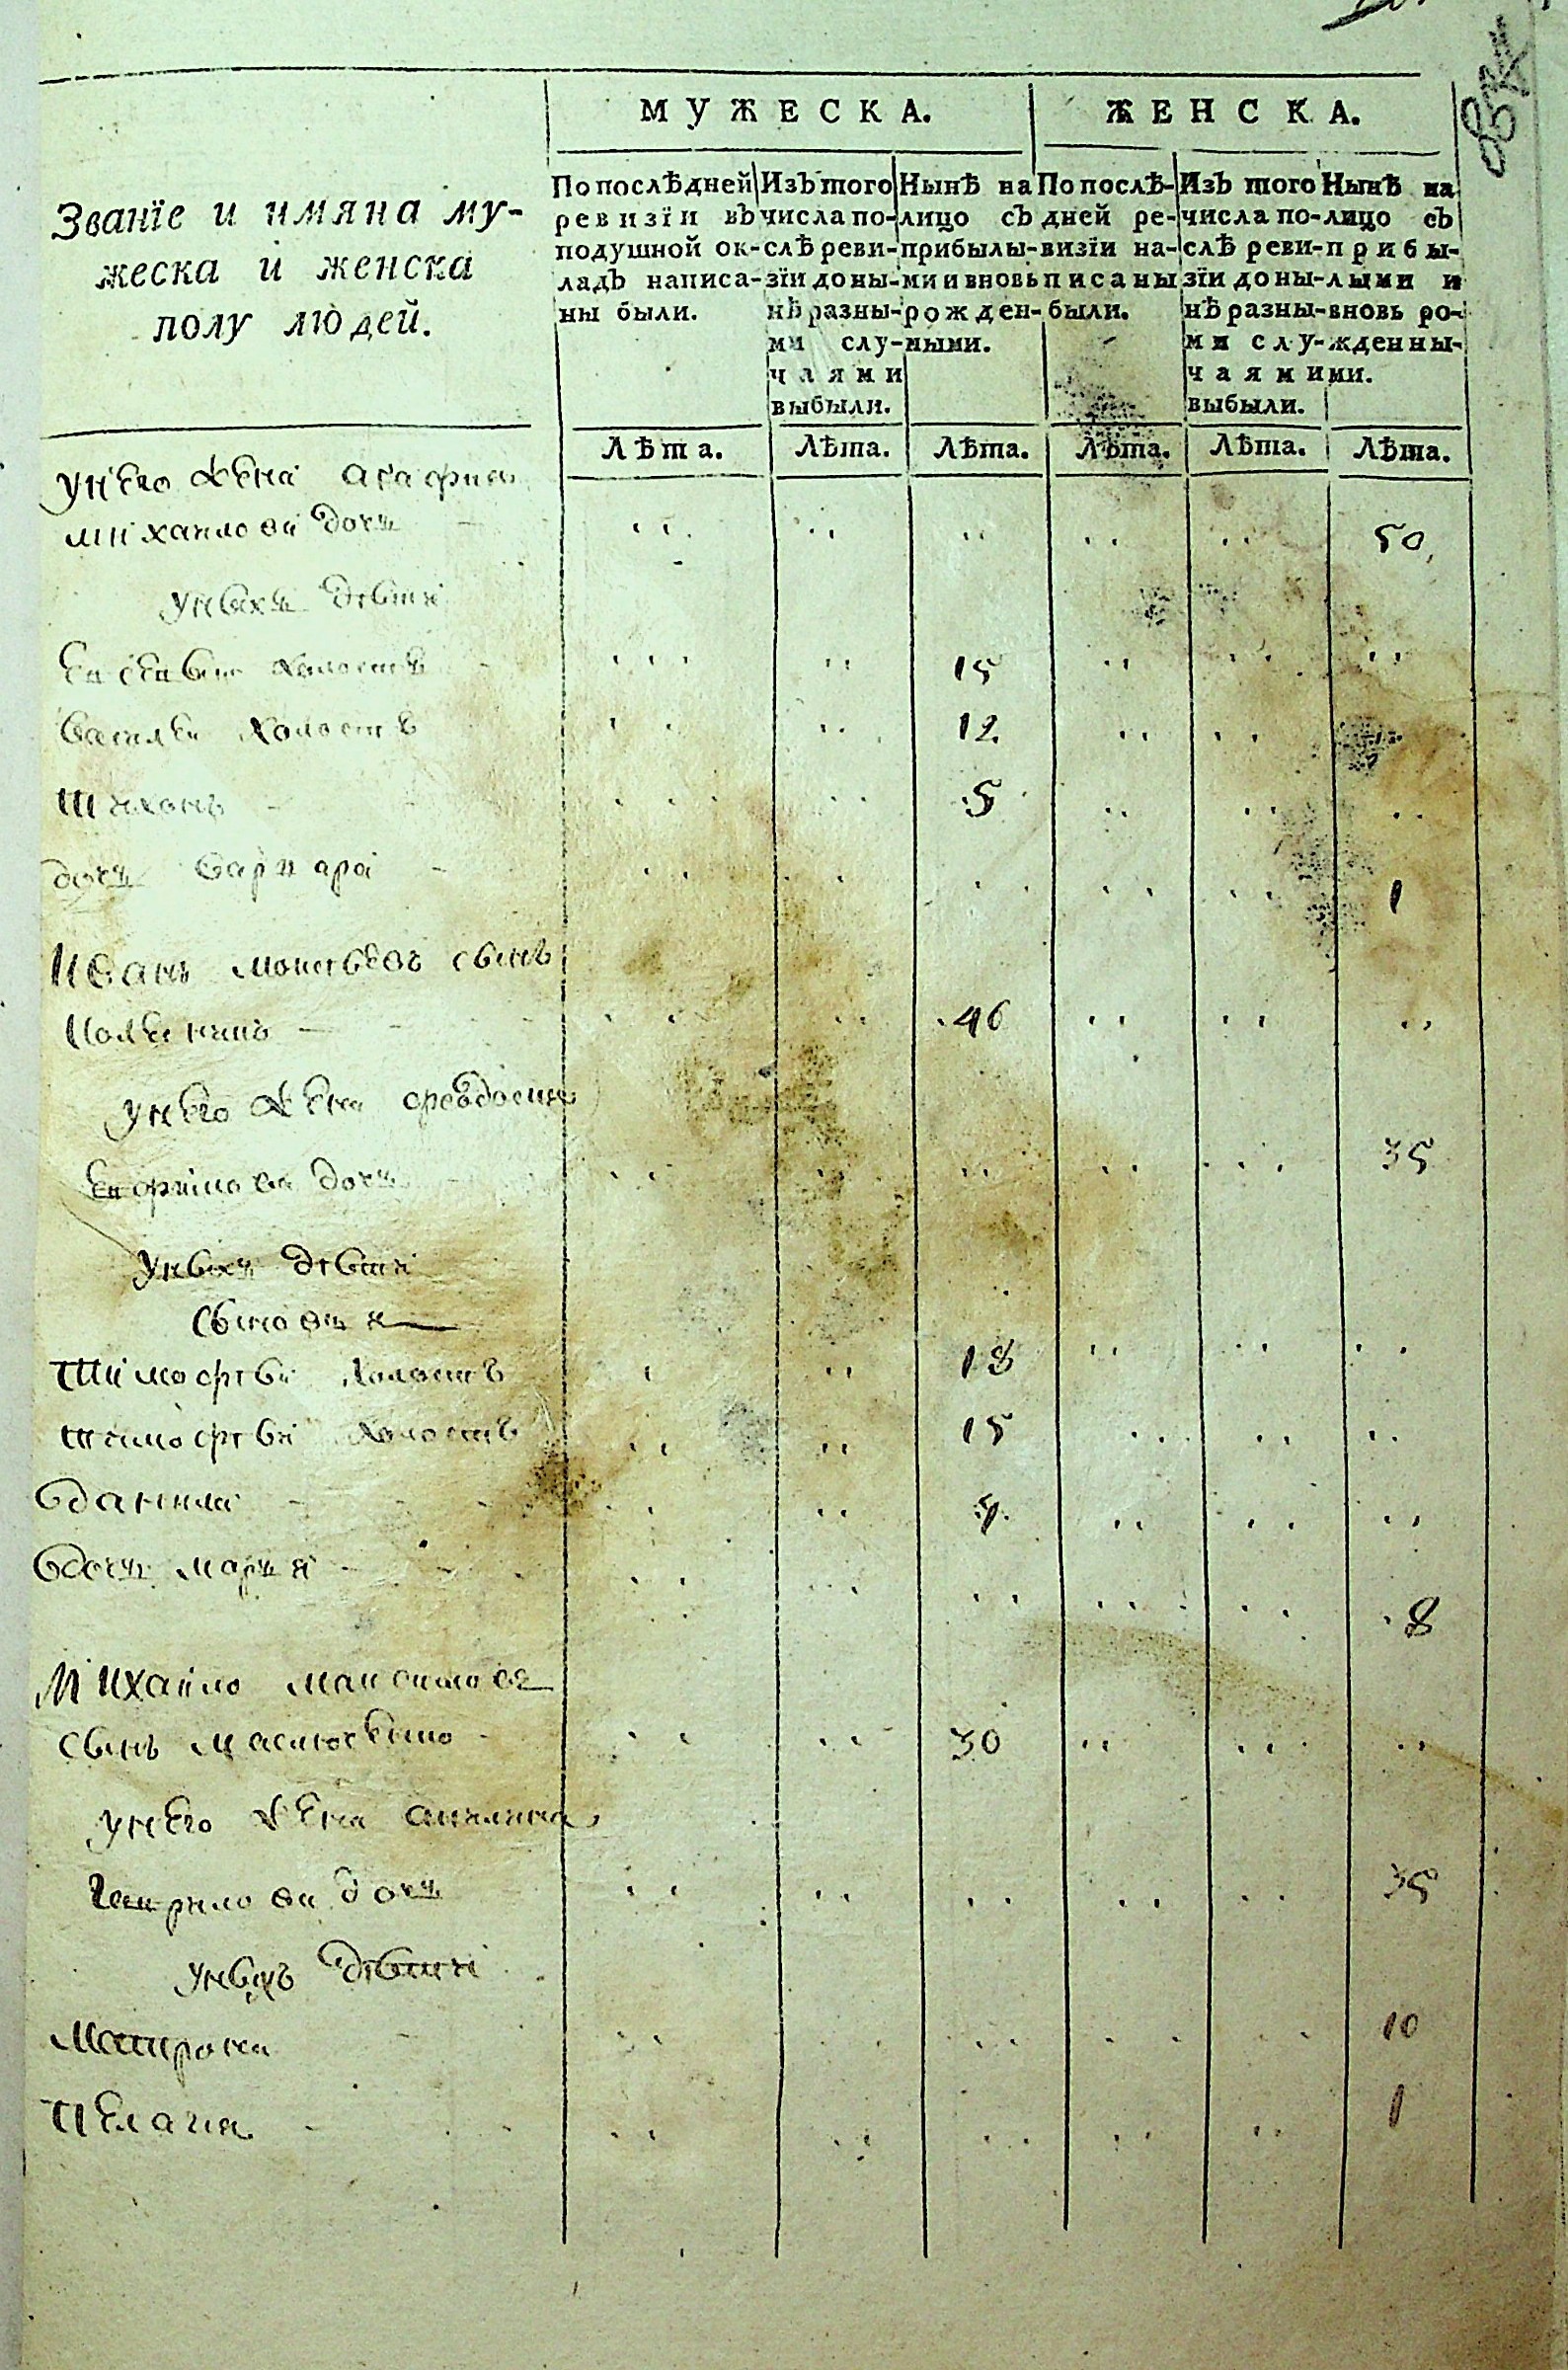 МУЖЕСКА.
ЖЕНСКА.
Званїе и имяна му-
жеска и женска
полу людей.
По послѣдней
ревизїи въ
подушной ок-
ладъ написа-
ны были.
Изъ того
числа по-
слѣ реви-
зїи доны-
нѣ разны-
ми слу-
чаями
выбыли.
Нынѣ на
лицо съ
прибылы-
ми и вновь
рожден-
ными.
По послѣ-
дней ре-
визїи на-
писаны
были.
Изъ того
числа по-
слѣ реви-
зїи доны-
нѣ разны-
ми слу-
чаями
выбыли.
Нынѣ на
лицо съ
прибы-
лыми и
вновь ро-
жденны-
ми.
Лѣта. Лѣта. Лѣта. Лѣта. Лѣта. Лѣта.
у него жена агафия
михайлова дочь 50
у них дети
евсевеи холостъ 15
василеи холостъ 12
тихонъ 5
дочь варвара 1
Иванъ сынъ
46
у него жена февдосия
ефимова дочь 35
у них дети
сыновья
тимофеи холостъ 18
тимофеи холостъ 15
данила
дочь марья 8
Михаило максимовъ
сынъ 30
у него жена акилина
гаврилова дочь 35
у нихъ дети
Матрона 10
пелагия 1